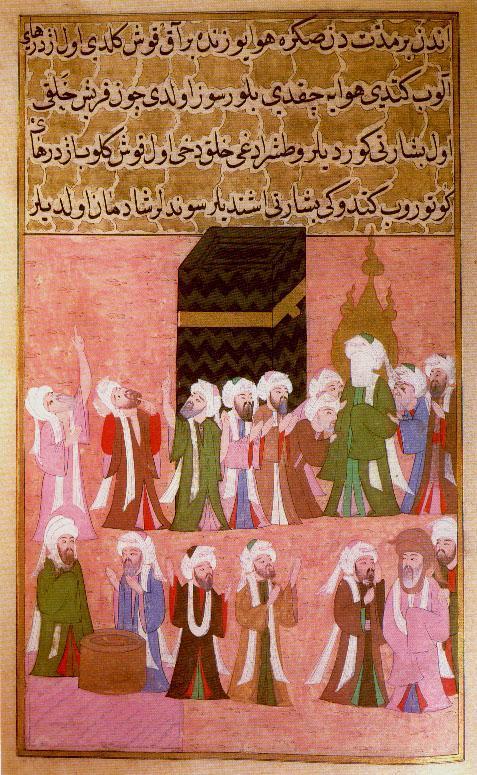 اندن بر مدت دن صكره هوا یوزندن بر آق قوش كلدی اول ازدرهای
آلوب كتدی هوایه چقدی بلورسوز اولدی چون قریش خَلقی
اول بشارتی كوردیلر و طشرادغی خلق دخی اول قوش كلوب ازدرهای
كوتوروب كتدوكی بشارتی اشتدیلر سوندلر شادمان اولدیلر